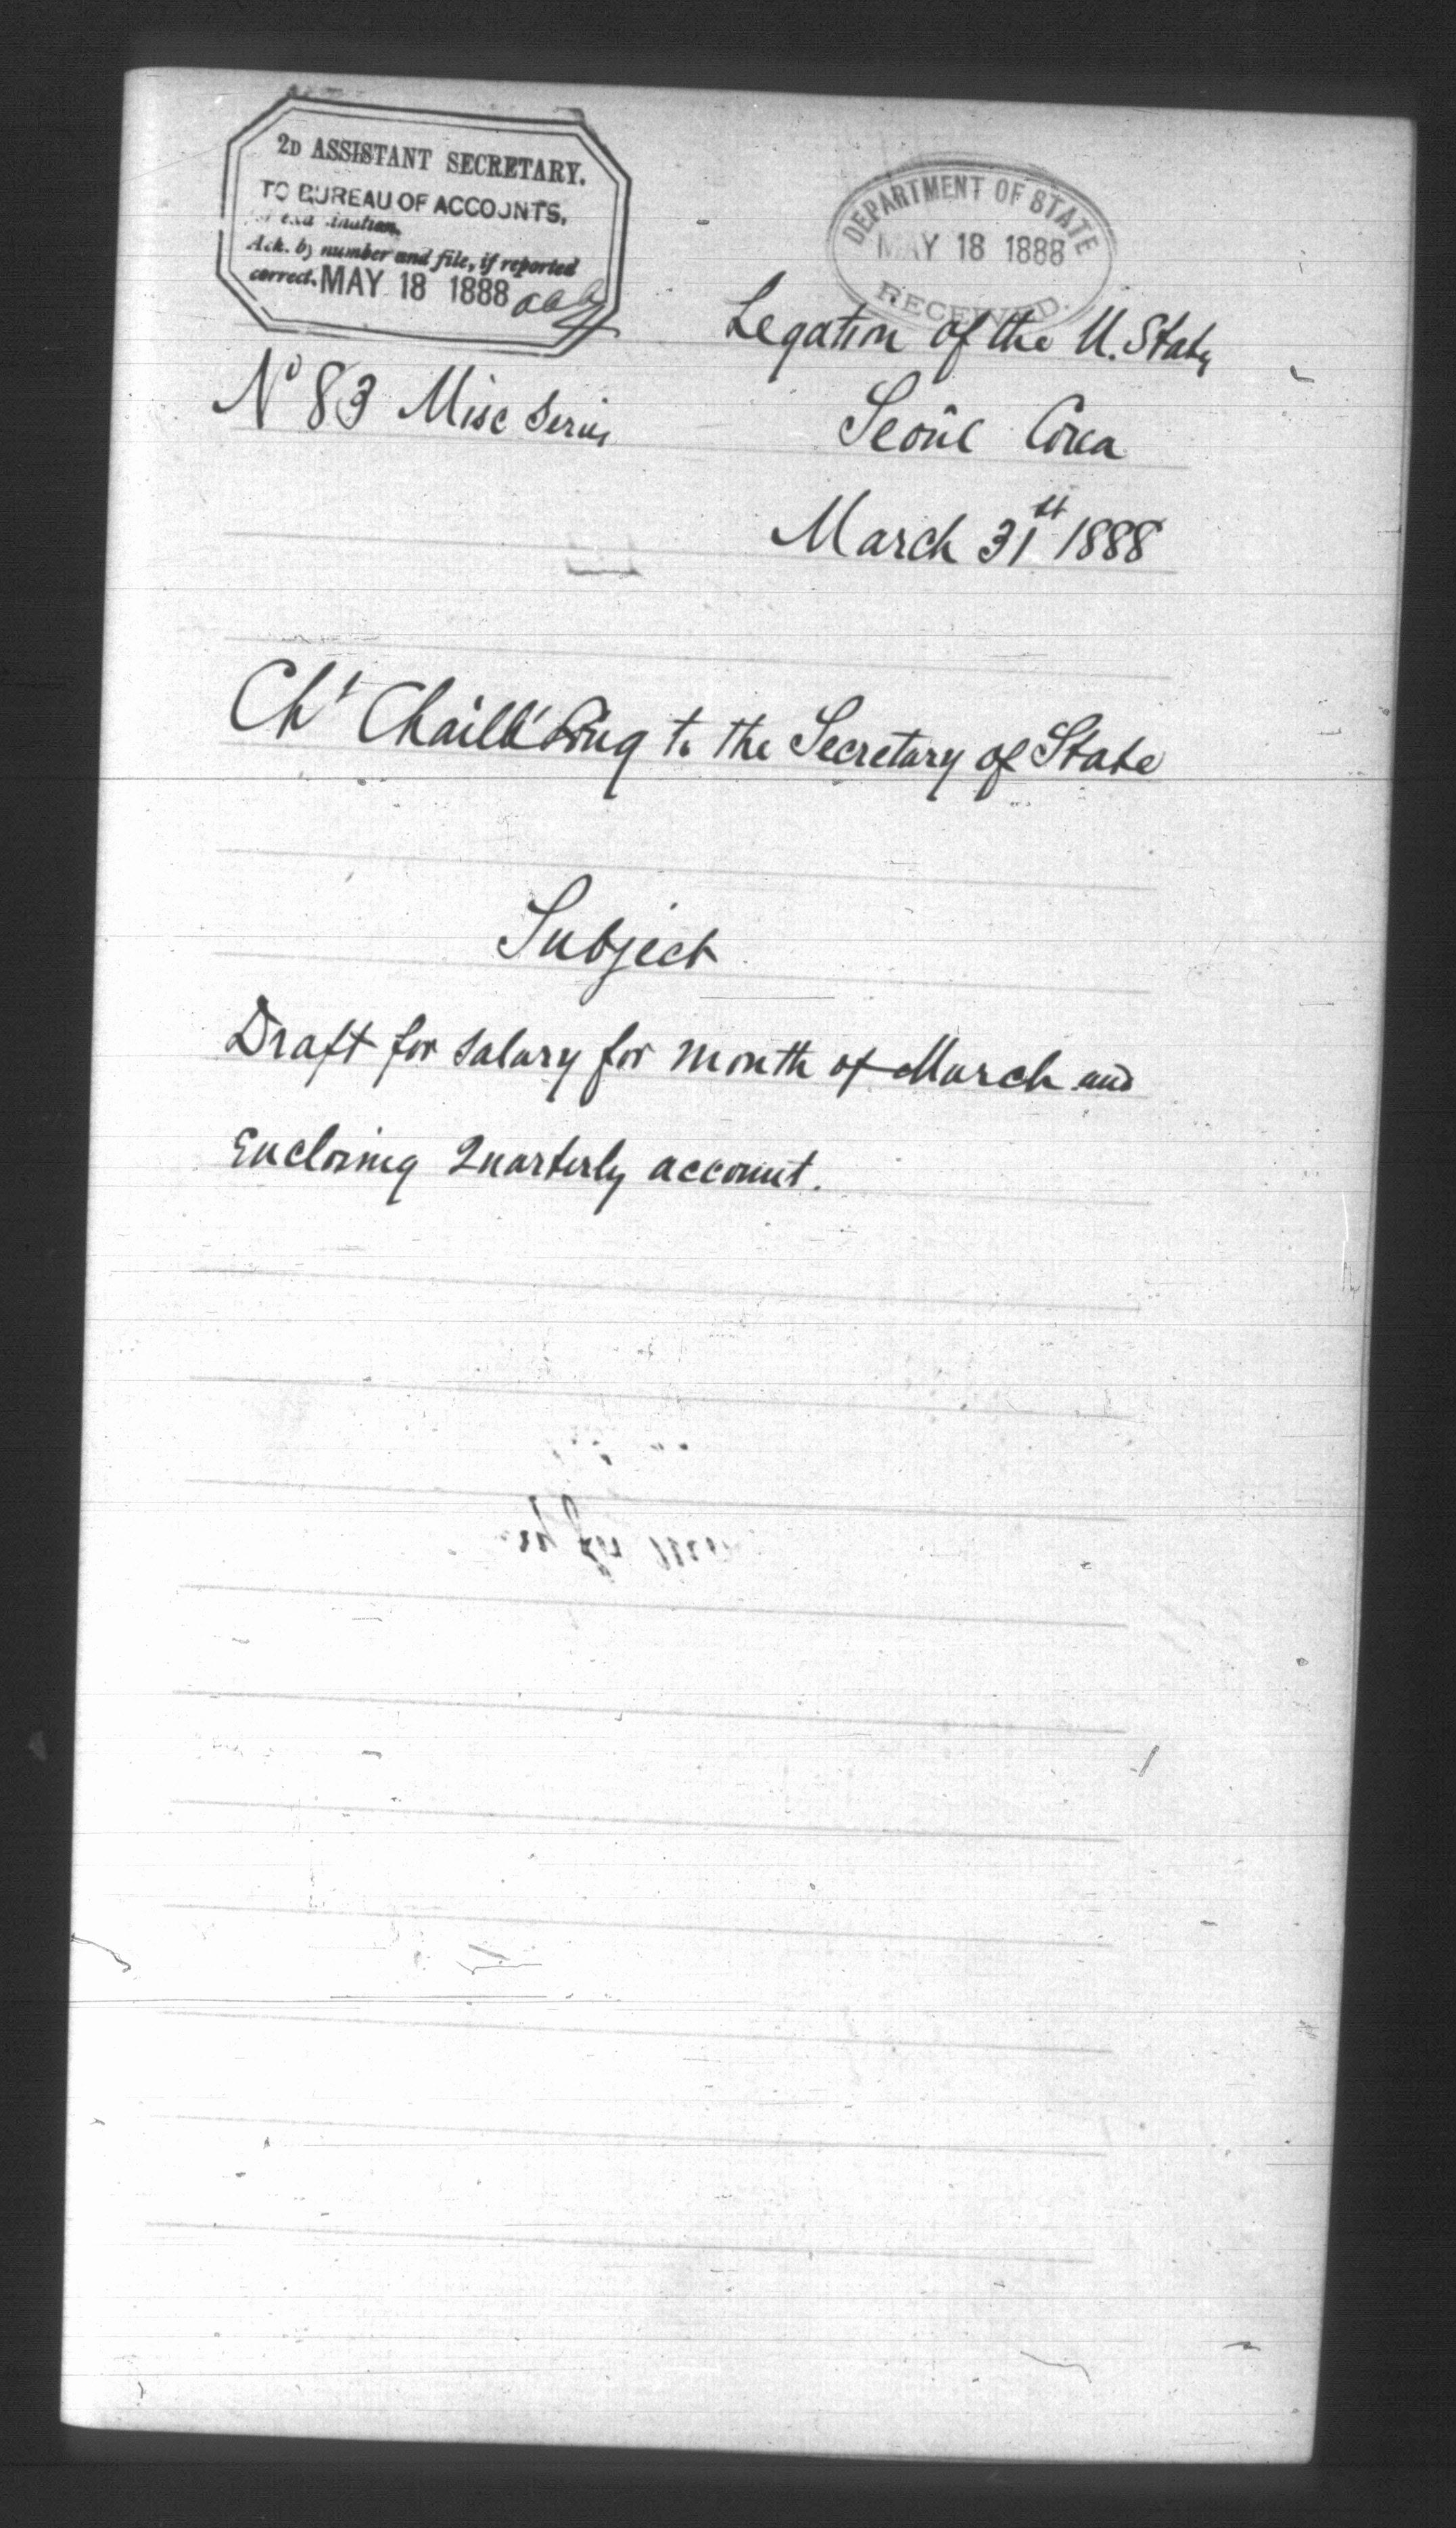 2D ASSISTANT SECRETARY.
TO BUREAU OF ACCOUNTS,
Ack. by number and file, if reported
correct. MAY 18 1888
DEPARTMENT OF STATE
MAY 18 1888
RECEIVED.
Legation of the U. States
No 83 Misc Series
Seoûl Corea
March 31st 1888
Cht Chaillé Long to the Secretary of State
Subject
Draft for salary for month of March and
Enclosing Quarterly account.